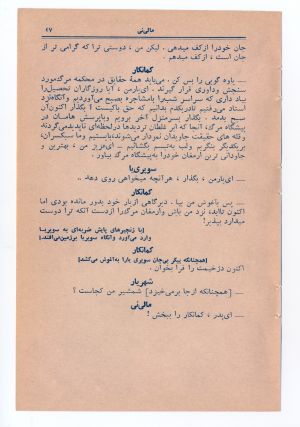 مالی‌نی
٤٧
جان خودرا ازکف میدهی. لیکن من ، دوستی تراکه گرامی تر از
جان است ، ازکف میدهم .
کمانکار
ــ یاوه گویی را بس کن . می‌باید همهٔ حقایق در محکمه مرگ‌مورد
سنجش وداوری قرار گیرند . ای‌یارمن ، آیا روزگاران تحصیل‌را
بیاد داری که سراسر شب‌را بامشاجره بصبح می‌آوردیم وآنگاه‌نزد
استاد می‌رفتیم تادریکدم بدانیم که حق باکیست ؟ بگذار آنکدم
صبح بدمد . بگذار بسرمنزل آخر برویم وباپرسش هامان در
پیشگاه مرگ، آنجا که ابر غلطان تردیدها درلحظه‌ای ناپدیدمیگردند
وقله های مرتفع حقیقت جاویدان نمودار می‌شوند،بایستیم وما سبکسران،
بریکدیگر بنگریم ولب به‌تبسم بگشائیم ــ ای‌عزیز من ، بهترین و
جاودانی ترین ارمغان خودرا به‌پیشگاه مرگ بیاور .
سوپری‌یا
ــ ای‌یارمن ، بگذار ، هرآنچه میخواهی روی دهد ..
کمانکار
ــ پس بآغوش من بیا . دیرگاهی ازیار خود بدور مانده بودی اما
اکنون تاابد، نزد من باش وارمغان مرگ‌را ازدست آنکه ترا دوست
میدارد بپذیر!
(با زنجیرهای پایش ضربه‌ای به سوپریـا
وارد می‌آورد وآنگاه سوپریا برزمین‌می‌افتد.)
کمانکار
(همچنانکه پیکر بی‌جان سوپری یارا به‌آغوش می‌کشد)
اکنون دژخیمت را فرا بخوان .
شهریار
ــ (همچنانکه ازجا برمی‌خیزد) شمشیر من کجاست ؟
مالی‌نی
ــ ای‌پدر ، کمانکار را ببخش !